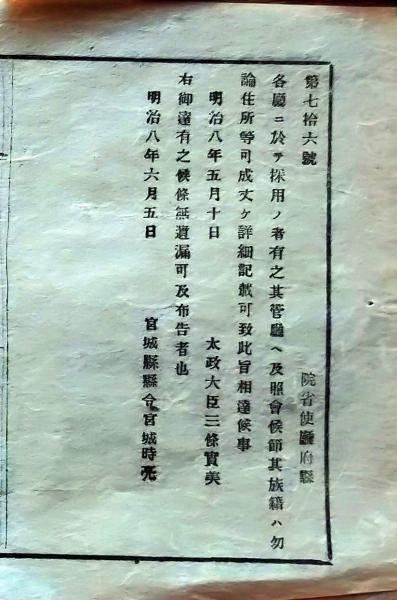 第七拾六號
院省使廳府縣
各廳ニ於テ採用ノ者有之其管廳ヘ及照會候節其族籍ハ勿
論住所等可成丈ケ詳細記載可致此旨相達候事
明治八年五月十日
太政大臣三條實美
右御達有之候條無遺漏可及布告者也
明治八年六月五日
宮城縣縣令宮城時亮